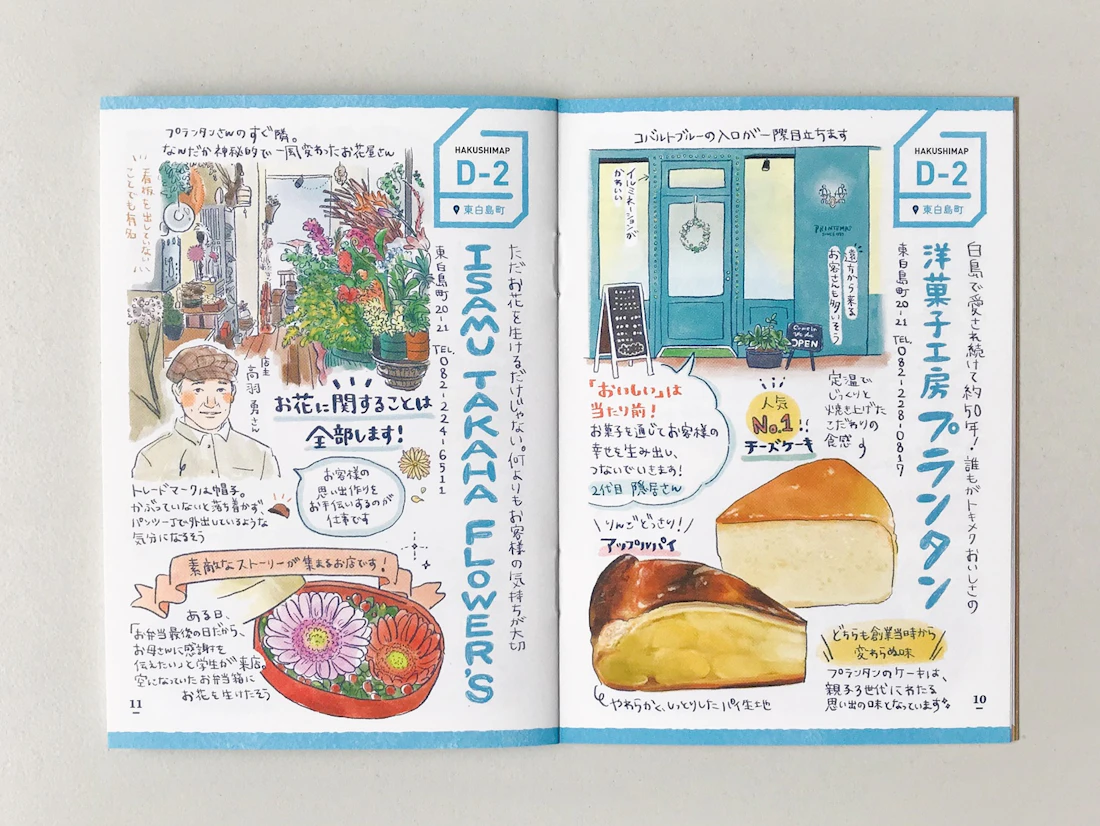 コバルトブルーの入口が一際目立ちます
HAKUSHIMAP
D-2
東白島町
白島で愛され続けて約50年!誰もがトキメクおいしさの
洋菓子工房 プランタン
東白島町20-21 TEL.082-228-0817
イルミネーションが
かわいい
PRINTEMPS
遠方から来る
お客さんも多いそう
OPEN
「おいしい」は
当たり前!
お菓子を通じてお客様の
幸せを生み出し、
つないでいきます!
2代目 隠居さん
人気
No.1!!
チーズケーキ
定温で
じっくりと
焼き上げた
こだわりの
食感
りんごどっさり!
アップルパイ
やわらかく、しっとりしたパイ生地
どちらも創業当時から
変わらぬ味
プランタンのケーキは、
親子3世代にわたる
思い出の味となっています
10
プランタンさんのすぐ隣。
なんだか神秘的で一風変わったお花屋さん
HAKUSHIMAP
D-2
東白島町
ただお花を生けるだけじゃない。何よりもお客様の気持ちが大切
ISAMU TAKAHA FLOWER'S
東白島町20-21 TEL.082-224-6511
看板を出していない
ことでも有名
店主
高羽 勇さん
お花に関することは
全部します!
お客様の
思い出作りを
お手伝いするのが
仕事です
トレードマークは帽子。
かぶっていないと落ち着かず、
パンツ一丁で外出しているような
気分になるそう
素敵なストーリーが集まるお店です!
ある日、
「お弁当最後の日だから、
お母さんに感謝を
伝えたい」と学生が来店。
空になっていたお弁当箱に
お花を生けたそう
11